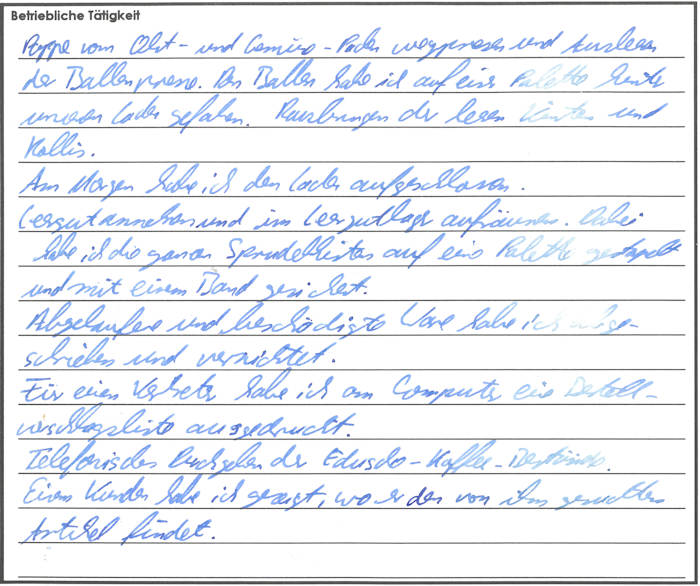 Betriebliche Tätigkeit
Pappe vom Obst- und Gemüse-Laden wegpressen und Ausleeren
der Ballenpresse. Den Ballen habe ich auf einer Palette hinter
unseren Laden gefahren. Rausbringen der leeren Kisten und
Kollis.
Am Morgen habe ich den Laden aufgeschlossen.
Leergut annehmen und im Leergutlager aufräumen. Dabei
habe ich die ganzen Sprudelkisten auf eine Palette gestapelt
und mit einem Band gesichert.
Abgelaufene und beschädigte Ware habe ich abge-
schrieben und vernichtet.
Für einen Vertreter habe ich am Computer eine Bestell-
vorschlagsliste ausgedruckt.
Telefonisches Durchgeben der Eduscho-Kaffee-Bestände.
Einem Kunden habe ich gezeigt, wo er den von ihm gesuchten
Artikel findet.